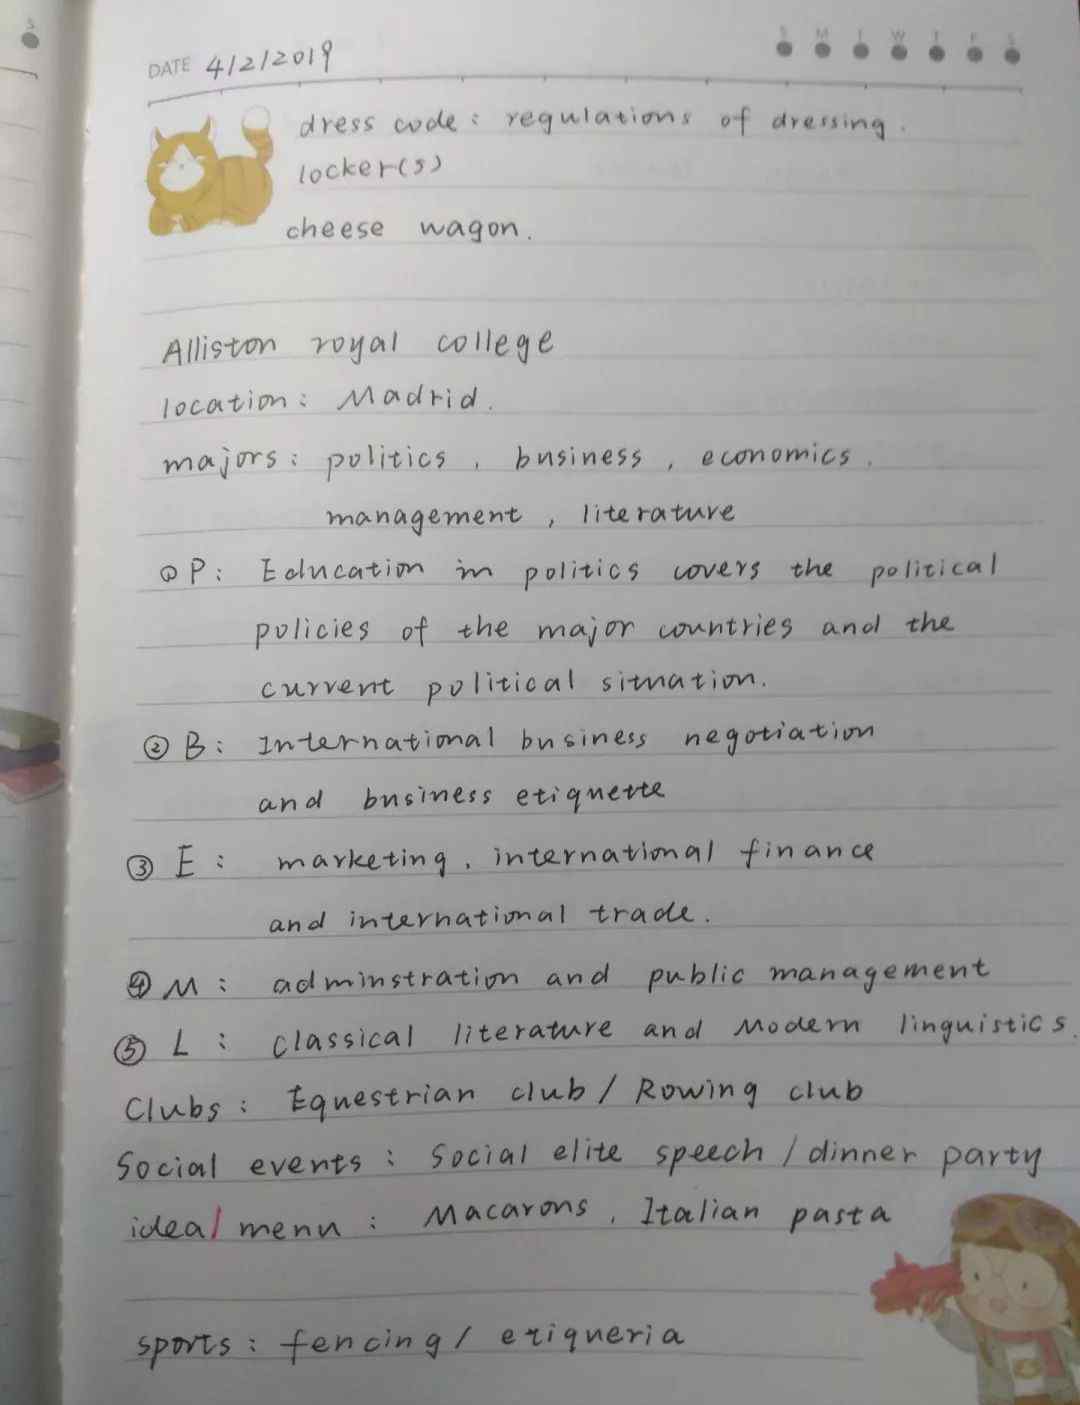 S
S M T W T F S
DATE 4/2/2019
dress code: regulations of dressing.
locker(s)
cheese wagon.
Alliston royal college
location: Madrid.
majors: politics, business, economics.
management, literature
① P: Education in politics covers the political
policies of the major countries and the
current political situation.
② B: International business negotiation
and business etiquette
③ E: marketing, international finance
and international trade.
④ M: adminstration and public management
⑤ L: classical literature and Modern linguistics.
Clubs: Equestrian club / Rowing club
Social events: Social elite speech / dinner party
ideal menu: Macarons, Italian pasta
sports: fencing / etiqueria